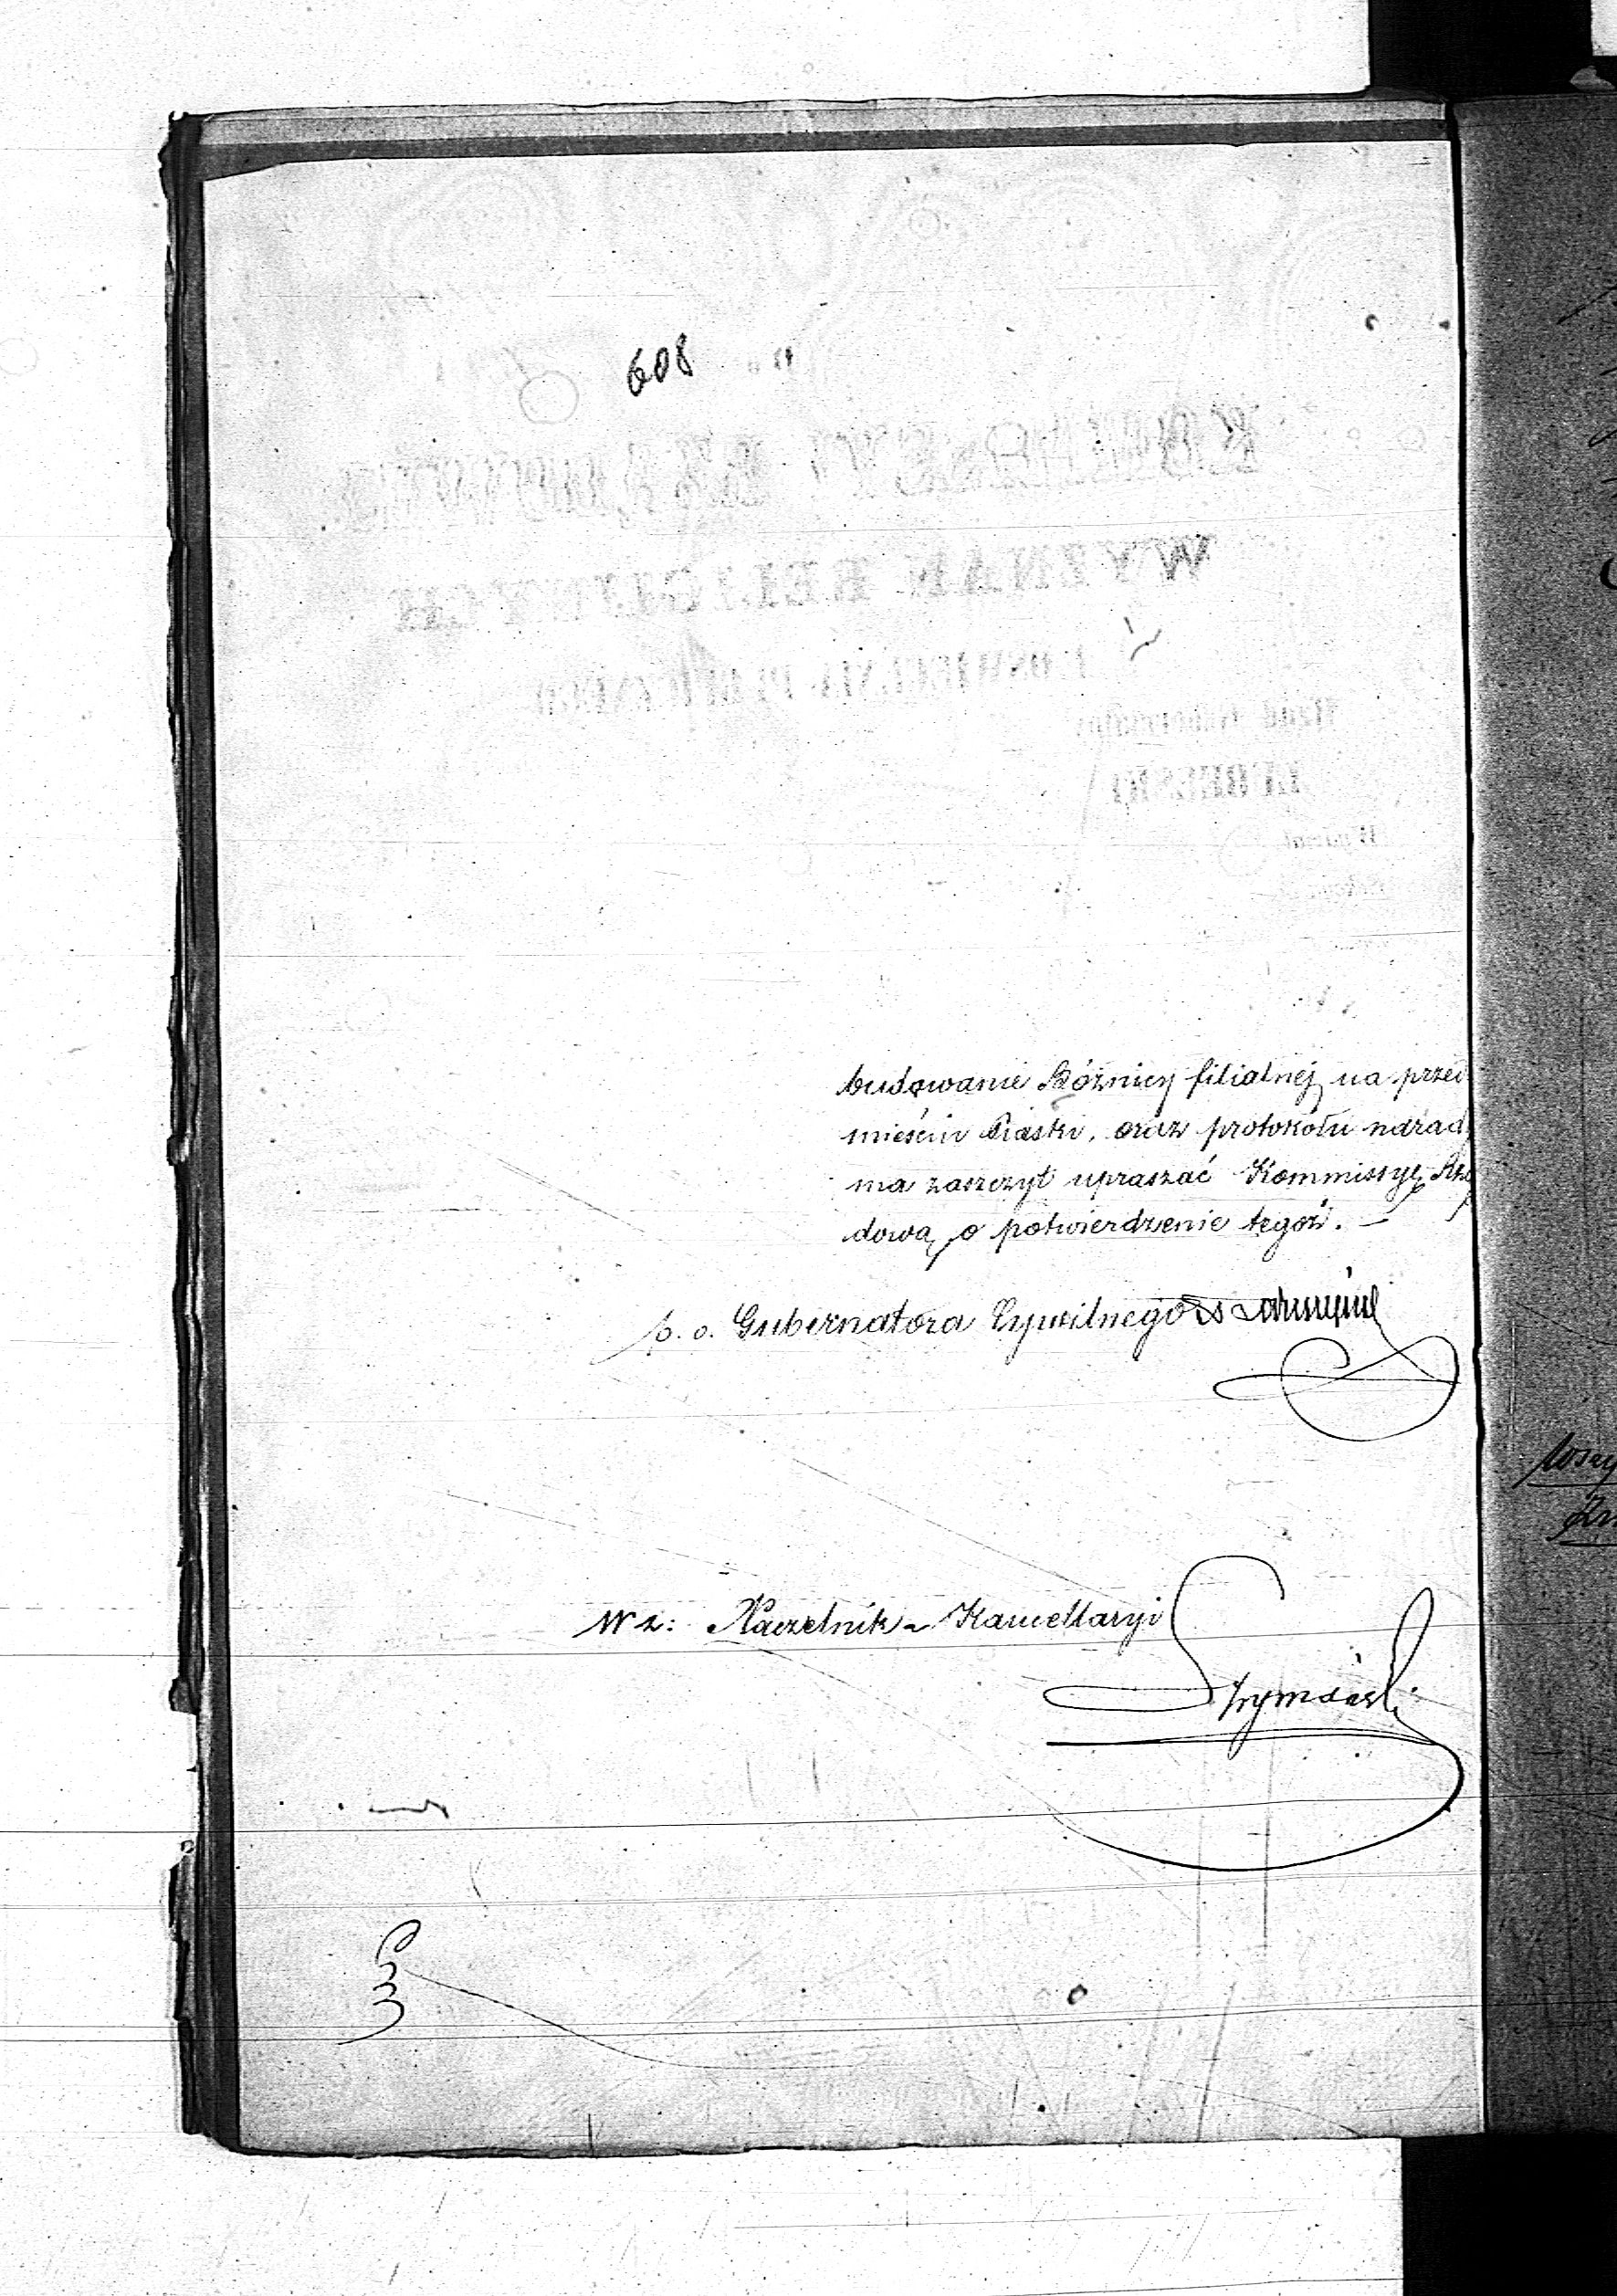 608
budowanie Bóżnicy filialnej na przed
mieściu Piaski, oraz protokółu narad
ma zaszczyt upraszać Kommissyę Rzą
dową o potwierdzenie tegoż. —
p. o. Gubernatora Cywilnego
W z: Naczelnik Kancellaryi
Szymański